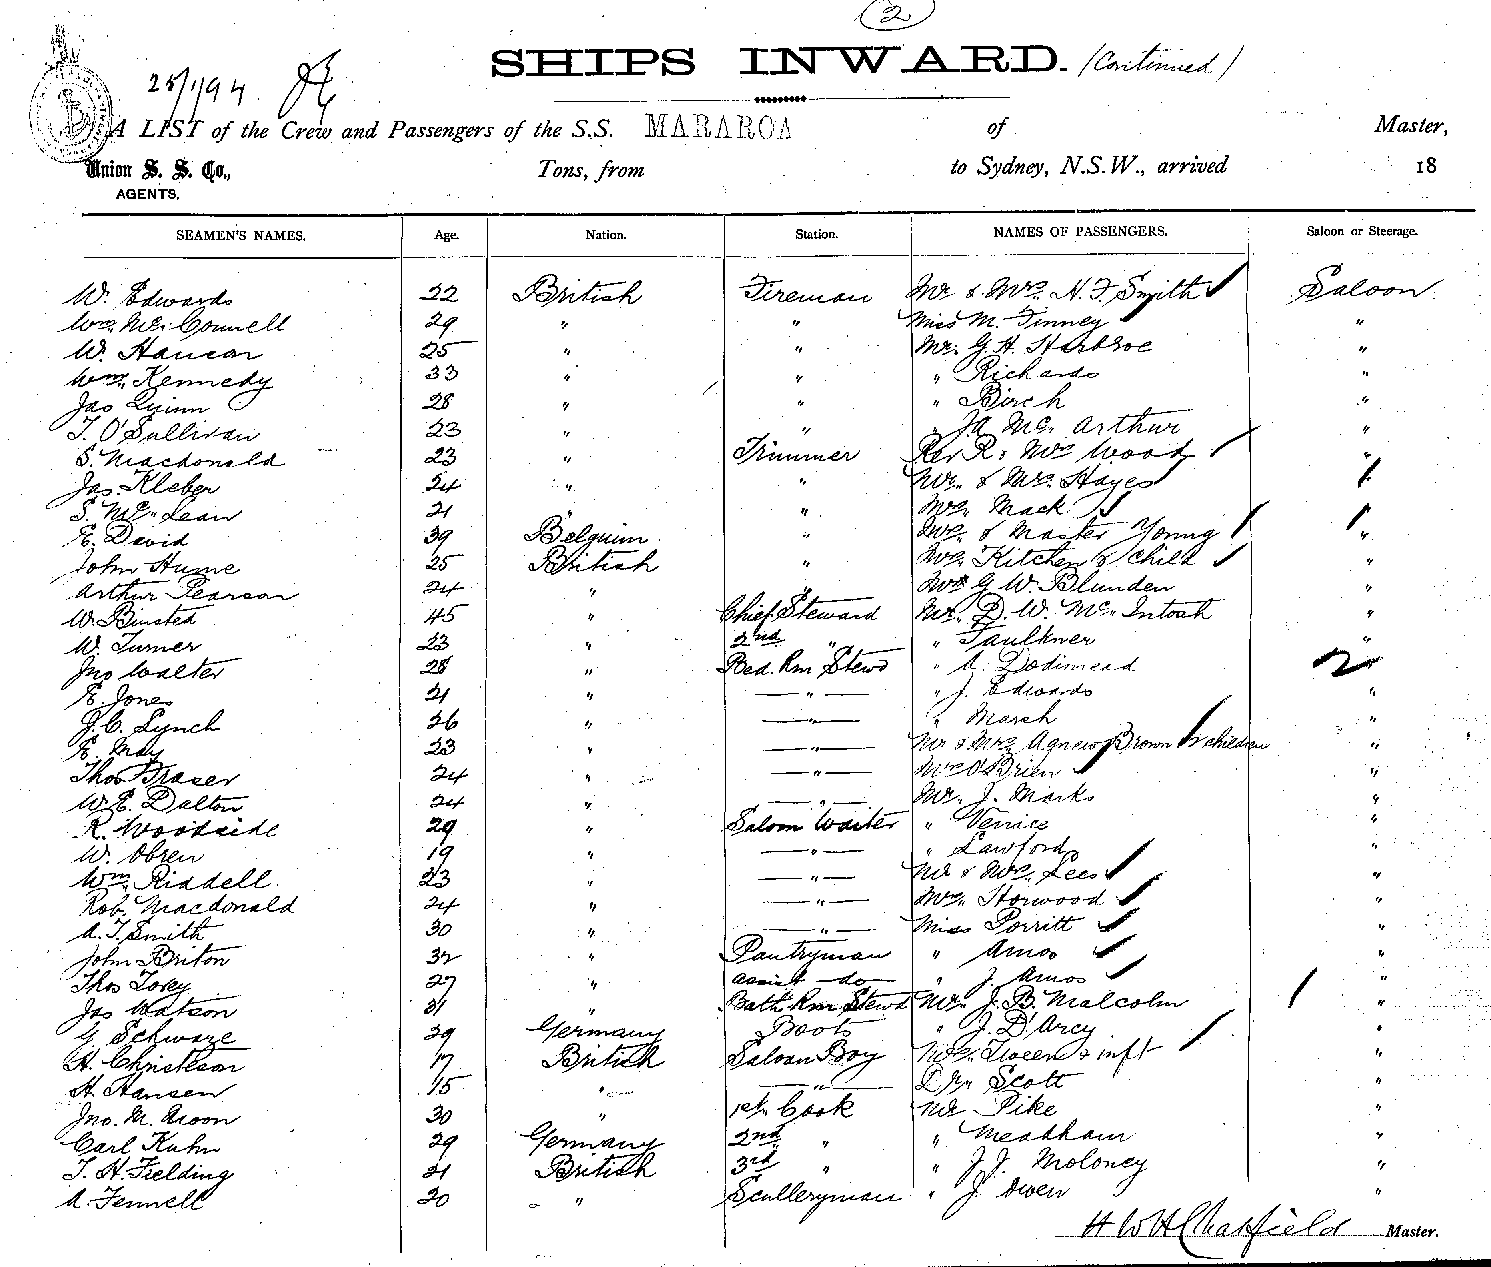 2
SHIPS INWARD. (Continued)
25/1/94
A LIST of the Crew and Passengers of the S.S. MARAROA of Master,
Union S. S. Co., Tons, from to Sydney, N.S.W., arrived 18
AGENTS.
SEAMEN'S NAMES. Age. Nation. Station. NAMES OF PASSENGERS. Saloon or Steerage.
W. Edwards 22 British Fireman Mr & Mrs. H. F. Smith Saloon
Wm. McConnell 29 " " Miss M. Finney "
W. Hancar 25 " " Mr. G. H. Harbroe "
Wm. Kennedy 33 " " " Richards "
Jas Quinn 28 " " " Birch "
T. O'Sullivan 23 " " " Jas McArthur "
S. Macdonald 23 " Trimmer Rev R & Mrs Wood "
Jas. Kleber 24 " " Mr. & Mrs. Hayes "
S. McLean 21 " " Mrs. Mack "
E. David 39 Belguim " Mrs. & Master Young "
John Hume 25 British " Mrs. Kitchen & child "
Arthur Pearson 24 " " Mrs G. W. Blunden "
W. Binsted 45 " Chief Steward Mr. D. W. McIntosh "
W. Turner 23 " 2nd " " Faulkner "
Jno Walter 28 " Bed. Rm Stewd " A. Dodimead "
E. Jones 21 " " " J. Edwards "
J. C. Lynch 26 " " " Marsh "
E. May 23 " " Mr & Mrs Agnew Brown & children "
Thos Fraser 24 " " Mrs O'Brien "
W. E. Dalton 24 " " Mr. J. Marks "
R. Woodside 29 " Saloon Waiter " Venice "
W. Obren 19 " " " Lawford "
Wm. Riddell 23 " " Mr & Mrs. Lees "
Rob. Macdonald 24 " " Mrs. Horwood "
A. T. Smith 30 " " Miss Porritt "
John Briton 32 " Pantryman " Amos "
Thos Tovey 27 " assist do " J. Amos "
Jas Watson 31 " Bath Rm Stewd Mr. J. B. Malcolm "
G. Schwarze 29 Germany Boots " J. D'Arcy "
H. Christeson 17 British Saloon Boy Mrs. Tween & inft "
H. Hansen 15 " " Dr. Scott "
Jno. M. Moon 30 " 1st Cook Mr Pike "
Carl Kuhn 29 Germany 2nd " " Meatham "
T. H. Fielding 21 British 3rd " " J. J. Moloney "
A. Fennell 20 " Sculleryman " J. Owen "
H W H Chatfield Master.